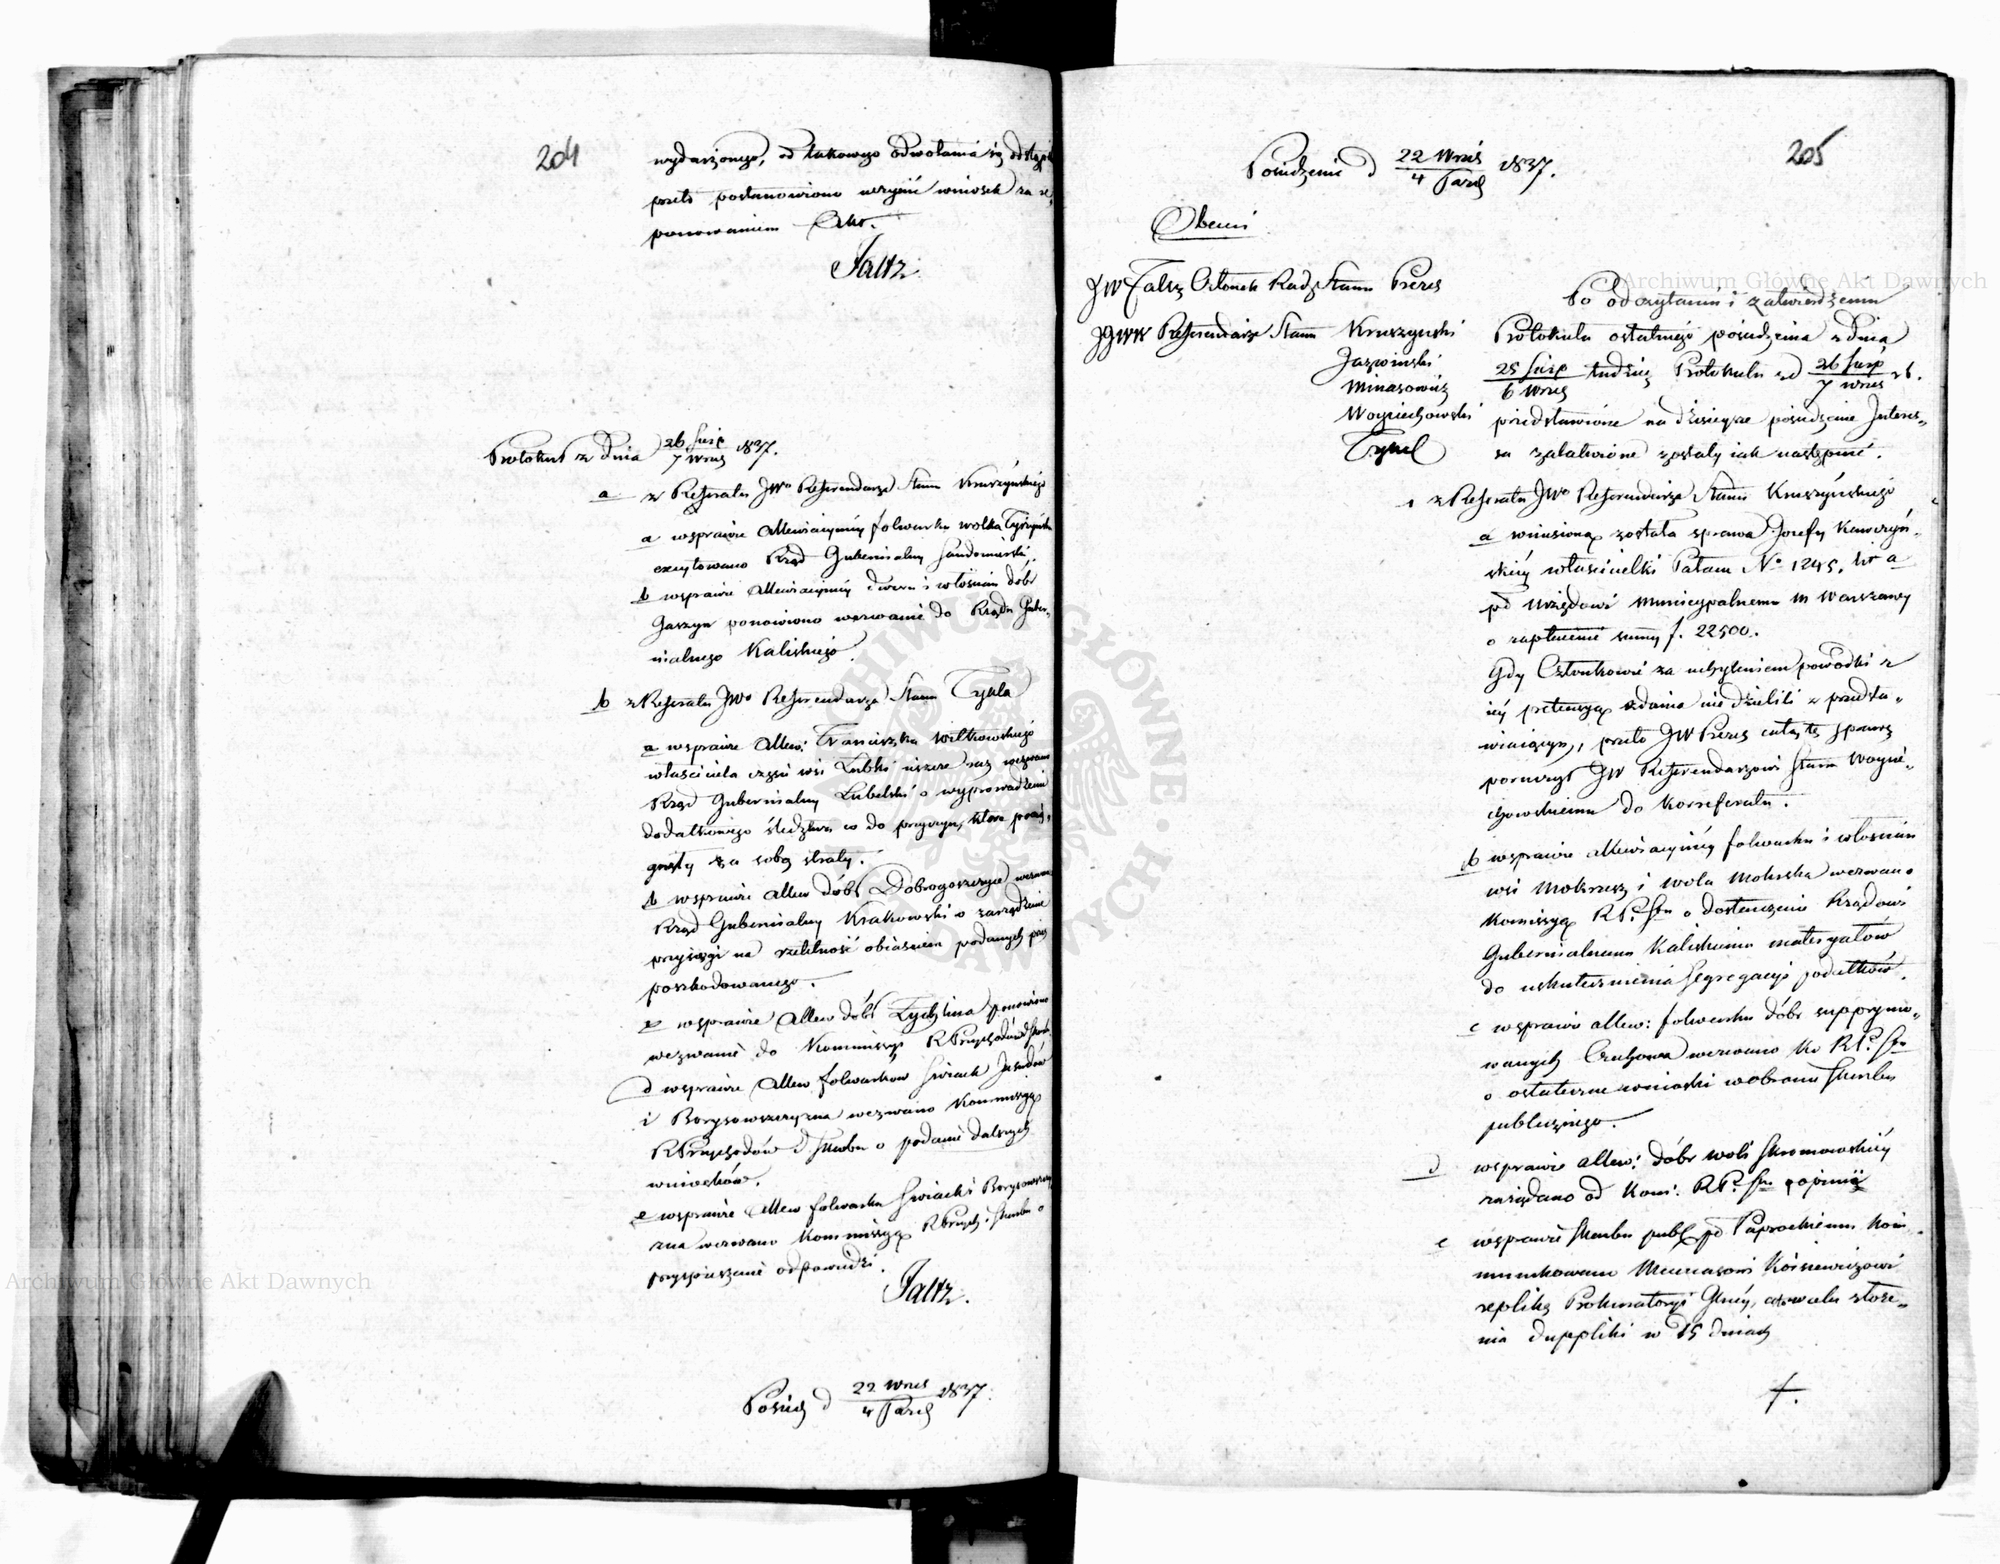 204
wydarzonego, od takowego odwołania się odstąpił
przeto postanowiono uczynić wniosek za re„
ponowaniem Akt.
Faltz
Protokuł z dnia 26 Sierp / 7 Wrześ 1837.
a z Referatu JWo Referendarza Stanu Kruszyńskiego
a wsprawie allewiacyiney folwarku Wolka
excytowano Rząd Gubernialny Sandomirski.
b wsprawie allewiacyiney dworu i włościan dóbr
Gaszyn ponowiono wezwanie do Rządu Guber„
nialnego Kaliskiego
b z Referatu JWo Referendarza Stanu Tykla
a wsprawie allew: Franciszka Wilkowskiego
właściciela części wsi Łubki ieszcze raz wezwano
Rząd Gubernialny Lubelski o wyprowadzenie
dodatkowego śledztwa co do przyczyn, które pocią„
gnęły za sobą straty.
b wsprawie allew dóbr Dobrogoszczyce wezwano
Rząd Gubernialny Krakowski o zarządzenie
przysięgi na rzetelność obiaśnień podanych przez
poszkodowanego.
c wsprawie allew dóbr Żychlina ponowiono
wezwanie do Kommissyi RPrzychodów i Skarbu
d wsprawie allew folwarków Swiack
i Borysowszczyzna wezwano Kommissyą
RPrzychodów i Skarbu o podanie dalszych
wniosków.
e wsprawie allew folwarku Swiack i Borysowszczy
zna wezwano Kommissyą RPrzych. i Skarbu o
przyspieszenie odpowiedzi.
Faltz.
Posiedz d 22 Wrześ / 4 Paźdz 1837.
205
Posiedzenie d 22 Wrześ / 4 Paźdz 1837.
Obecni
JW Faltz Członek Rady Stanu Prezes
JJWW Referendarze Stanu Kruszyński
Jaźwiński
Minasowicz
Woyciechowski
Tykel
Po odczytaniu i zatwierdzeniu
Protokułu ostatniego posiedzenia z dnia
25 Sierp / 6 Wrześ tudzież Protokułu zd 26 Sierp / 7 Wrześ rb.
przedstawione na dzisieysze posiedzenie Interes„
sa załatwione zostały iak następuie.
1 z Referatu JWo Referendarza Stanu Kruszyńskiego
a wniesioną została sprawa Jozefy Kawczyń„
skiey właścicielki Pałacu No 1245. lit a
pko Urzędowi Municypalnemu M Warszawy
o zapłacenie summy f. 22500.
Gdy Członkowie za uchyleniem powódki z
iey pretensyą zdania nie dzielili z przedsta„
wiaiącym, przeto JW Prezes całą tę sprawę
poruczył JW Referendarzowi Stanu Woycie„
chowskiemu do Korreferatu.
b wsprawie allewiacyiney folwarku i włościan
wsi Mokrzesz i Wola Mokrzska wezwano
Kommissyą RP. Sbu o dostarczenie Rządowi
Gubernialnemu Kaliskiemu materyałów
do uskutecznienia segregacyi podatków.
c wsprawie allew: folwarku dóbr suppryma„
wanych wezwano Ko RP. Sbu
o ostateczne wnioski wobronie Skarbu
publicznego.
d wsprawie allew: dóbr Woli Skromowskiey
zażądano od Kom: RP. Sbu opinii
e wsprawie Skarbu publ. pko Paprockiemu kom„
munikowano Mecenasowi Kósiewiczowi
replikę Prokuratoryi Glney, wcelu złoże„
nia duppliki w 15 dniach